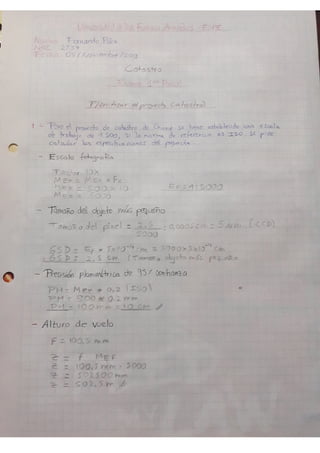 Universidad de las Fuerzas Armadas - ESPE
Nombre: Fernando Páez
NRC: 2737
Fecha: 05/Noviembre/2019
Catastro
Examen 1er Parcial
Planificar el proyecto catastral
1.- Para el proyecto de catastro de se tiene establecido una escala
de trabajo de 1:500, si la norma de referencia es ISO. Se pide
calcular las especificaciones del proyecto.
- Escala fotografía
Factor 10x
MEF = MEK * Fx
MEF = 500 * 10
MEF = 5000 EF=1:5000
- Tamaño del objeto más pequeño
Tamaño del pixel = 2.5 / 5000 = 0.0005 cm = 5 um (CCD)
GSD = EF * 5x10⁻⁴ cm = 5000x5x10⁻⁴ cm
GSD = 2.5 cm (Tamaño objeto más pequeño
- Precisión planimétrica de 95% confianza
PH = MEK * 0.2 (ISO)
PH = 500 * 0.2 mm
PH = 100 mm = 10 cm
- Altura de vuelo
F = 100,5 mm
Z = f * MEF
Z = 100,5 mm * 5000
Z = 502500 mm
Z = 502,5 m